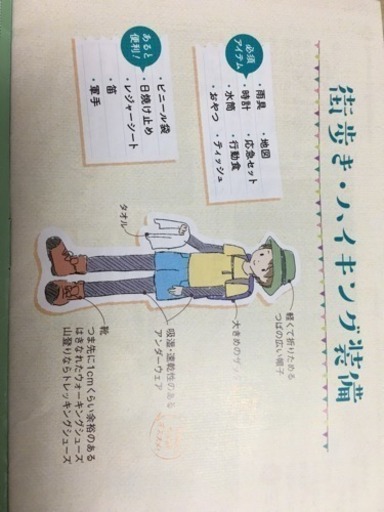 街歩き・ハイキング装備
必須
アイテム
・雨具　・地図
・時計　・応急セット
・水筒　・行動食
・おやつ　・ティッシュ
あると
便利!
・ビニール袋
・日焼け止め
・レジャーシート
・笛
・軍手
軽くて折りたためる
つばの広い帽子
大きめの
タオル
吸湿・速乾性のある
アンダーウェア
靴
つま先に1cmくらい余裕のある
はきなれたウォーキングシューズ
山登りならトレッキングシューズ